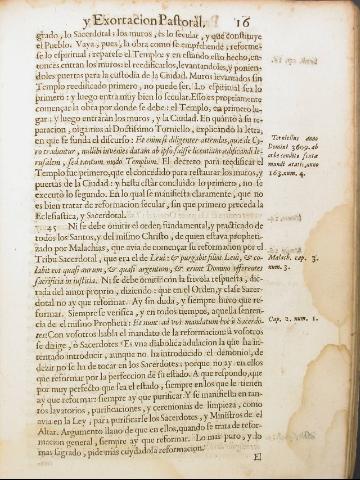 y Exortacion Pastoral. 16
grado, lo Sacerdotal: los muros, és lo secular, y que constituye
el Pueblo. Vaya, pues, la obra como se emprehende; reforme-
se lo espiritual: reparese el Templo: y en estando esto hecho, en-
tonces entran los muros: el reedificarlos, levantandolos, y ponien-
doles puertas para la custodia de la Ciudad. Muros levantados sin
Templo reedificado primero, no puede ser. Lo espiritual sea lo
primero: y luego entra muy bien lo secular. Esso es propriamente
començar la obra por donde se debe: el Templo, en primero lu-
gar: y luego entrarán los muros, y la Ciudad. En quanto à su re-
paracion, oigamos al Doctissimo Torniello, explicando la letra,
en que se funda el discurso: Et enim si diligenter attendas, quæ de Cy-
ro traduntur, nullibi invenies datam ab ipso fuisse licentiam ædificandi Ie-
rusalem, sed tantum modo Templum. El decreto para reedificar el
Templo fue primero, que el concedido para restaurar los muros, y
puertas de la Ciudad: y hasta estár concluido lo primero, no se
executó lo segundo. En lo qual se manifiesta claramente, que no
es bien tratar de reformacion secular, sin que primero preceda la
Eclesiastica, y Sacerdotal.
Torielius anno
Domini 3609. ab
orbe condito sexta
mundi ætatis, anno
163. num. 4.
45 Ni se debe omitir el orden, fundamental, practicado de
todos los Santos, y del mismo Christo, de quien estava prophe-
zado por Malachias, que avia de començar su reformacion por el
Tribu Sacerdotal, que era el de Levi: & purgabit filios Levi, & co-
labit eos quasi aurum, & quasi argentum, & erunt Domino offerentes
sacrificia in iustitia. Ni se debe omitir con la frivola respuesta, dic-
tada del amor proprio, diziendo: que en el Orden, y clase Sacer-
dotal no ay que reformar. Ay sin duda, y siempre huvo que re-
formar. Siempre se verifica, y en todos tiempos, aquella senten-
cia de el mismo Propheta: Et nunc ad vos mandatum hoc ò Sacerdo-
tes: Con vosotros habla el mandato de la reformacion: à vosotros
se dirige, ò Sacerdotes: Es vna diabolica adulacion la que ha in-
tentado introducir, aunque no ha introducido el demonio, de
dezir no se ha de tocar en los Sacerdotes: porque no ay en ellos
que reformar por la perfeccion de su estado. A que respondo, que
por muy perfecto que sea el estado, siempre en los que le tienen
ay que reformar: siempre ay que purificar. Y se manifiesta en tan-
tos lavatorios, purificaciones, y ceremonias de limpieza, como
avia en la Ley; para purificarse los Sacerdotes, y Ministros de el
Altar. Argumento llano de que en ellos, quando se trata de refor-
macion general, siempre ay que reformar. Lo mas puro, y lo
mas sagrado, pide mas cuydadosa reformacion.
Malach. cap. 3.
num. 3.
Cap. 2. num. 1.
El